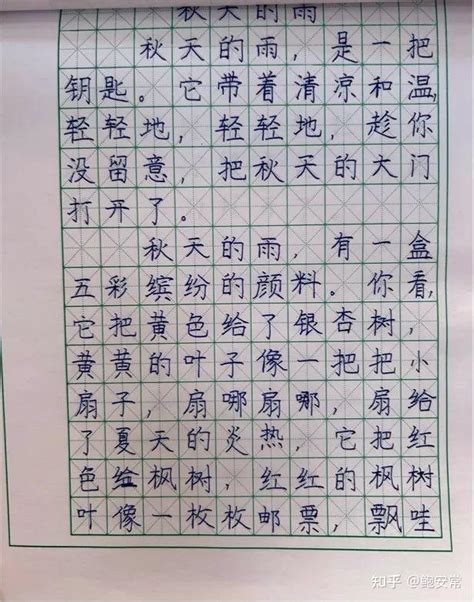 秋天的雨
秋天的雨，是一把
钥匙。它带着清凉和温，
轻轻地，轻轻地，趁你
没留意，把秋天的大门
打开了。
秋天的雨，有一盒
五彩缤纷的颜料。你看，
它把黄色给了银杏树，
黄黄的叶子像一把把小
扇子，扇哪扇哪，扇给
了夏天的炎热，它把红
色给枫树，红红的枫树
叶像一枚枚邮票，飘哇
知乎 @鲍安常